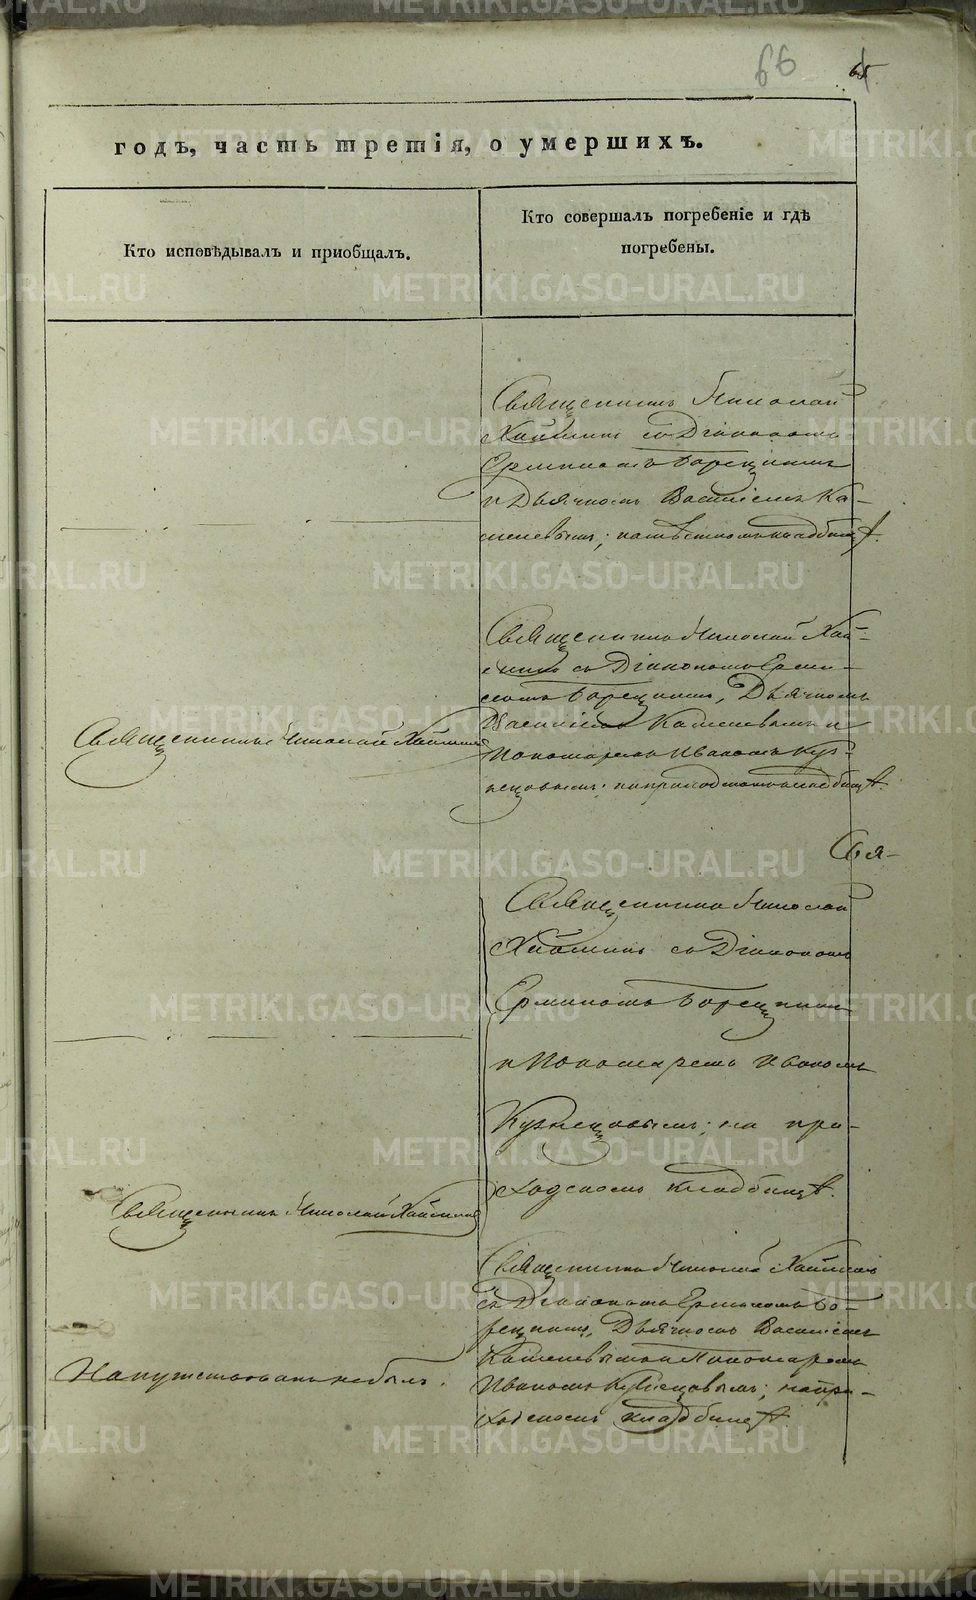 66
65
годъ, часть третія, о умершихъ.
Кто исповѣдывалъ и приобщалъ.
Кто совершалъ погребеніе и гдѣ
погребены.
Священникъ Николай
съ Діакономъ
Борецкимъ
и Дьячкомъ Василіемъ Ка-
меневымъ; на мѣстномъ кладбищѣ.
Священникъ Николай Хай-
съ Діакономъ
Борецкимъ, Дьячкомъ
Василіемъ Каменевымъ и
Пономаремъ Иваномъ Куз-
нецовымъ; на приходскомъ кладбищѣ.
Священникъ Николай
Свя-
Священникъ Николай
съ Діакономъ
Борецкимъ
и Пономаремъ Иваномъ
Кузнецовымъ; на при-
ходскомъ кладбищѣ.
Священникъ Николай
Священникъ Николай
съ Діакономъ Бо-
рецкимъ, Дьячкомъ Василіемъ
Каменевымъ и Пономаремъ
Иваномъ Кузнецовымъ; на при-
ходскомъ кладбищѣ.
Напутствованъ не былъ.
METRIKI.GASO-URAL.RU